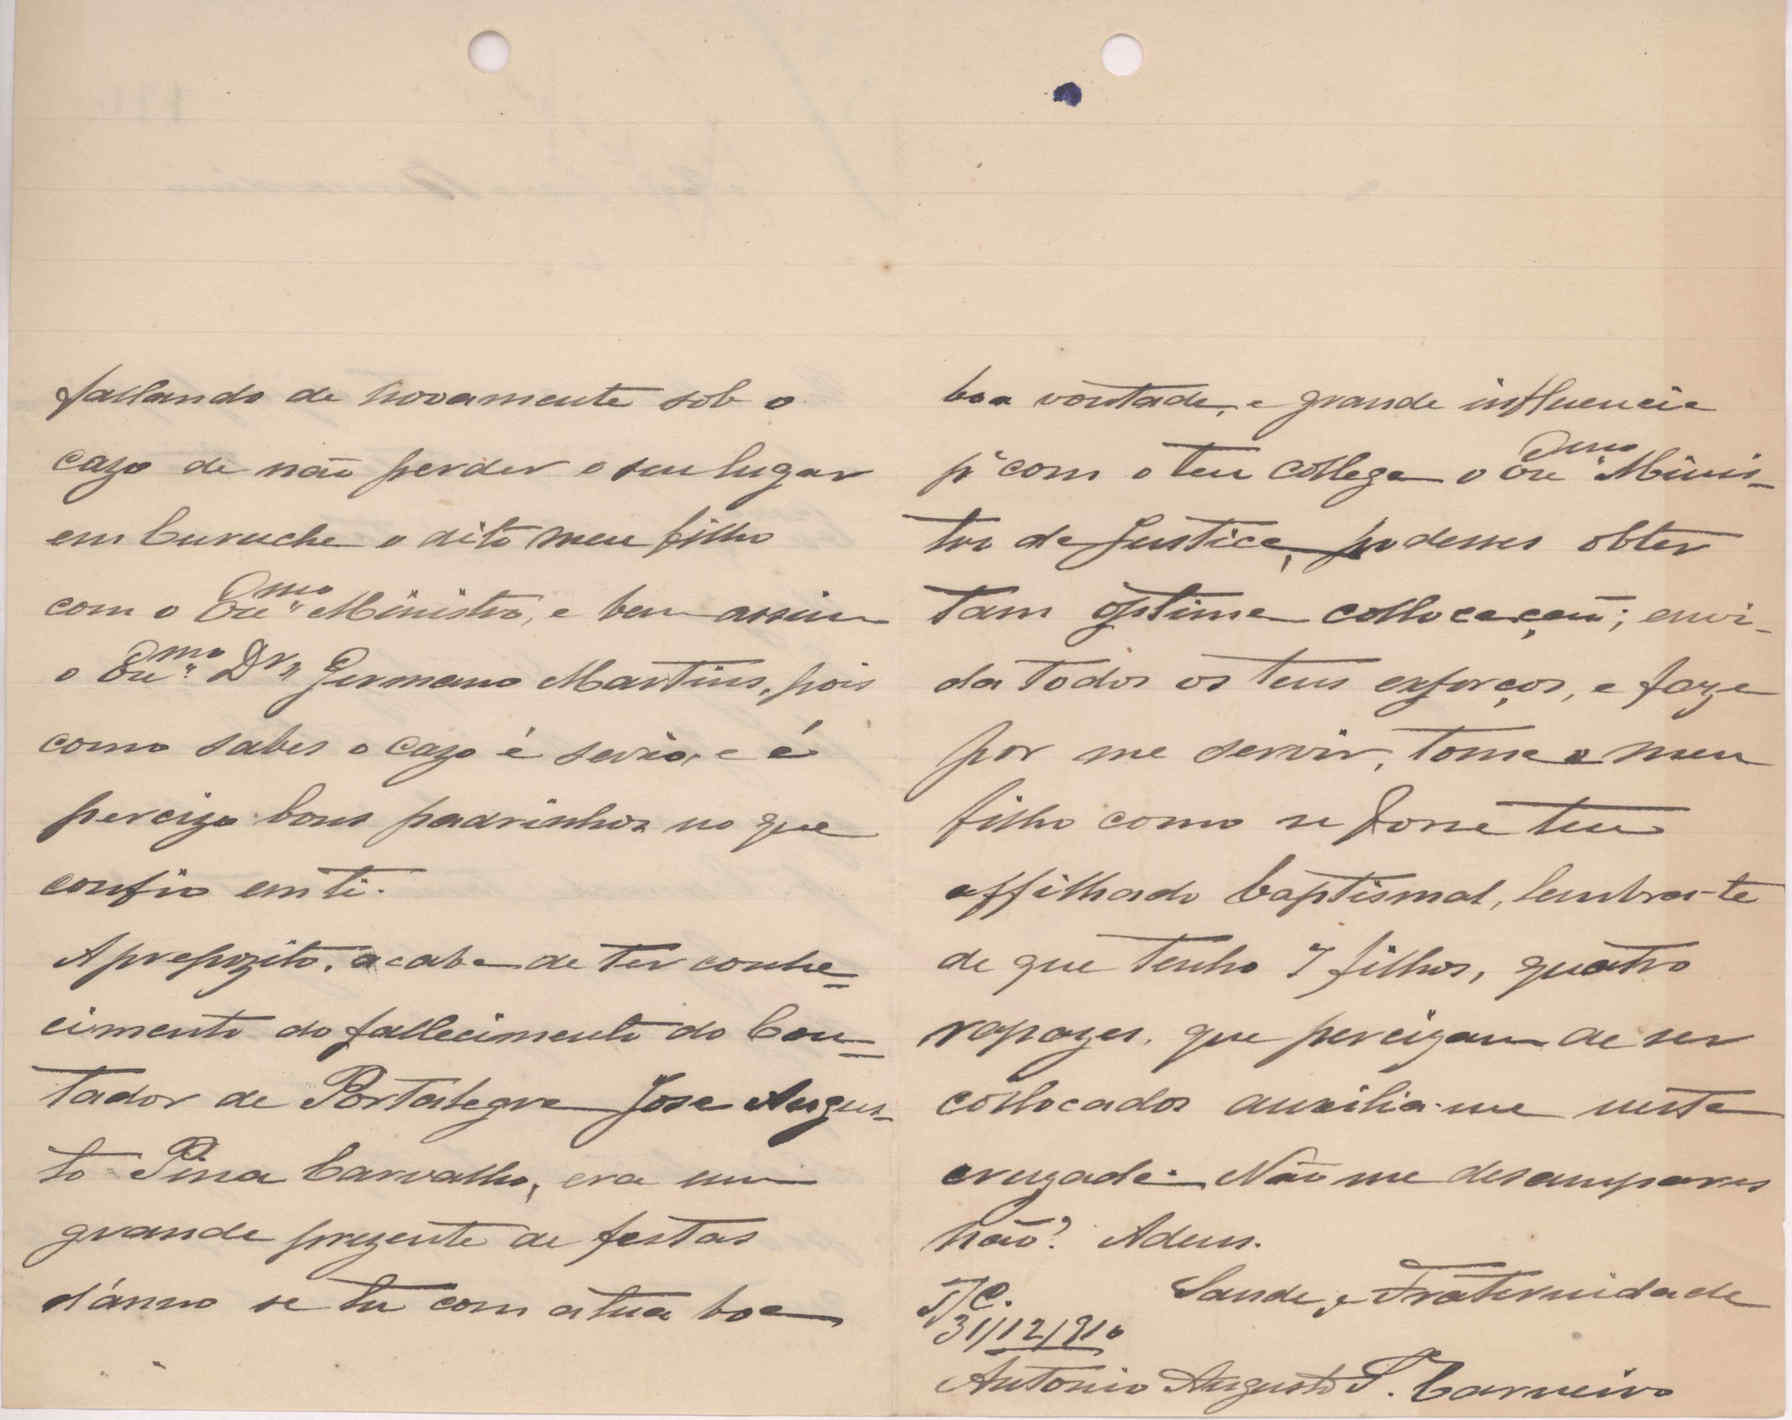 fallando de novamente sob o
cazo de não perder o seu lugar
em Curuche o dito meu filho
com o Exmo Ministro, e bem assim
o Exmo Dr. Germano Martins, pois
como sabes o cazo é serio, e é
percizo bons padrinhos no que
confio em ti.
A prepozito, acabo de ter conhe=
cimento do fallecimento do Con=
tador de Portalegre Jose Augus-
to Pina Carvalho, era um
grande prezente de festas
d'anno se tu com a tua boa
boa vontade, e grande influencia
pa com o teu collega o Exmo Minis-
tro de Justiça, podesses obter
tam optima collocação; envi-
da todos os teus exforços, e faze
por me servir, toma o meu
filho como se fosse teu
affilhado baptismal, lembra-te
de que tenho 7 filhos, quatro
rapazes, que percizam de ser
collocados auxilia-me nesta
cruzada. Não me desampares
não? Adeus.
Saude, e Fraternidade
T/C.
31/12/910
Antonio Augusto T. Carneiro